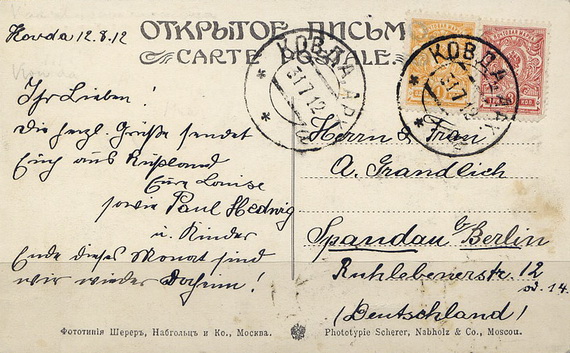 Kovda 12.8.12
ОТКРЫТОЕ ПИСЬМ
CARTE POSTALE.
КОВДА АРХ
31 7 12
КОВДА АРХ
31 7 12
Ihr Lieben!
Die herzl. Grüße sendet
Euch aus Rußland
Eure Louise
sowie Paul Hedwig
u. Kinder
Ende dieses Monat sind
wir wieder daheim!
Herrn & Frau
A. Grandlich
Spandau b/Berlin
Ruhlebenerstr. 12
od. 14.
(Deutschland)
Фототипія Шереръ, Набгольцъ и Ко., Москва.
Phototypie Scherer, Nabholz & Co., Moscou.